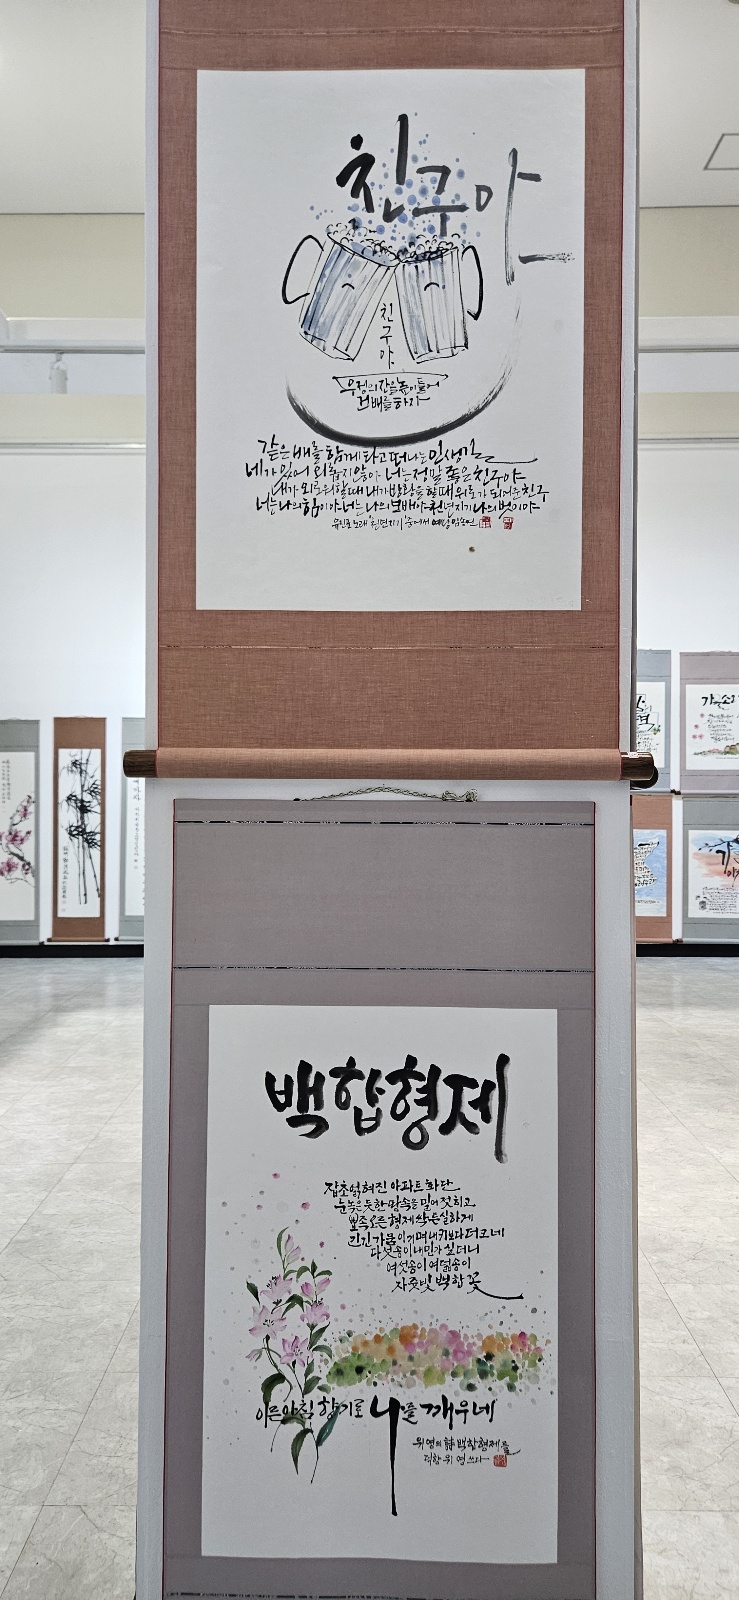 친구야
친
구
야
우정의 잔을 높이 들어
건배를 하자
같은 배를 함께 타고 떠나는 인생길
네가 있어 외롭지 않아 너는 정말 좋은 친구야
내가 외로워할 때 내가 방황을 할 때 위로가 되어준 친구
너는 나의 힘이야 너는 나의 보배야 천년지기 나의 벗이야
유진표 노래 '천년지기' 중에서
백합형제
잡초 얽혀진 아파트 화단
눈 녹은 듯한 땅속을 밀어 젖히고
뾰족 오른 형제 싹 튼실하게
긴긴 가뭄 이기며 내 키보다 더 크네
다섯 송이 내민가 싶더니
여섯 송이 여덟 송이
자줏빛 백합꽃
이른 아침 향기로 나를 깨우네
위영의 詩 백합형제를
위영 쓰다